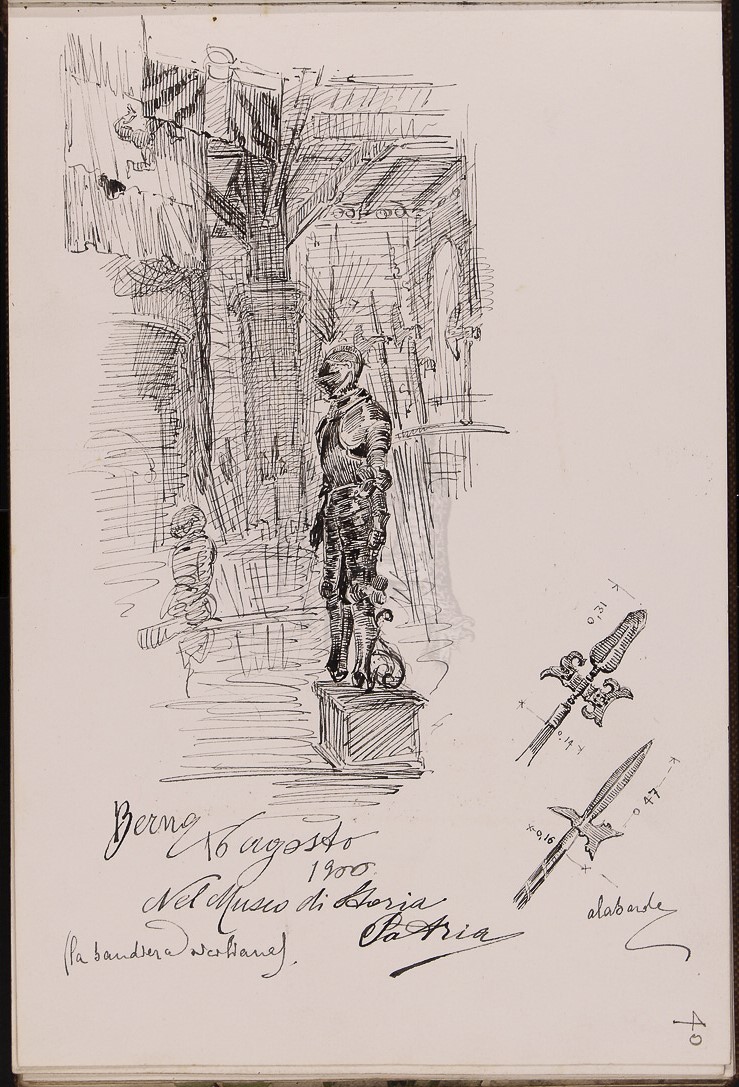 0,31
0,14
0,47
0,16
Berna 16 agosto
1900
Nel Museo di Storia
Patria
(la bandiera
alabarde
40